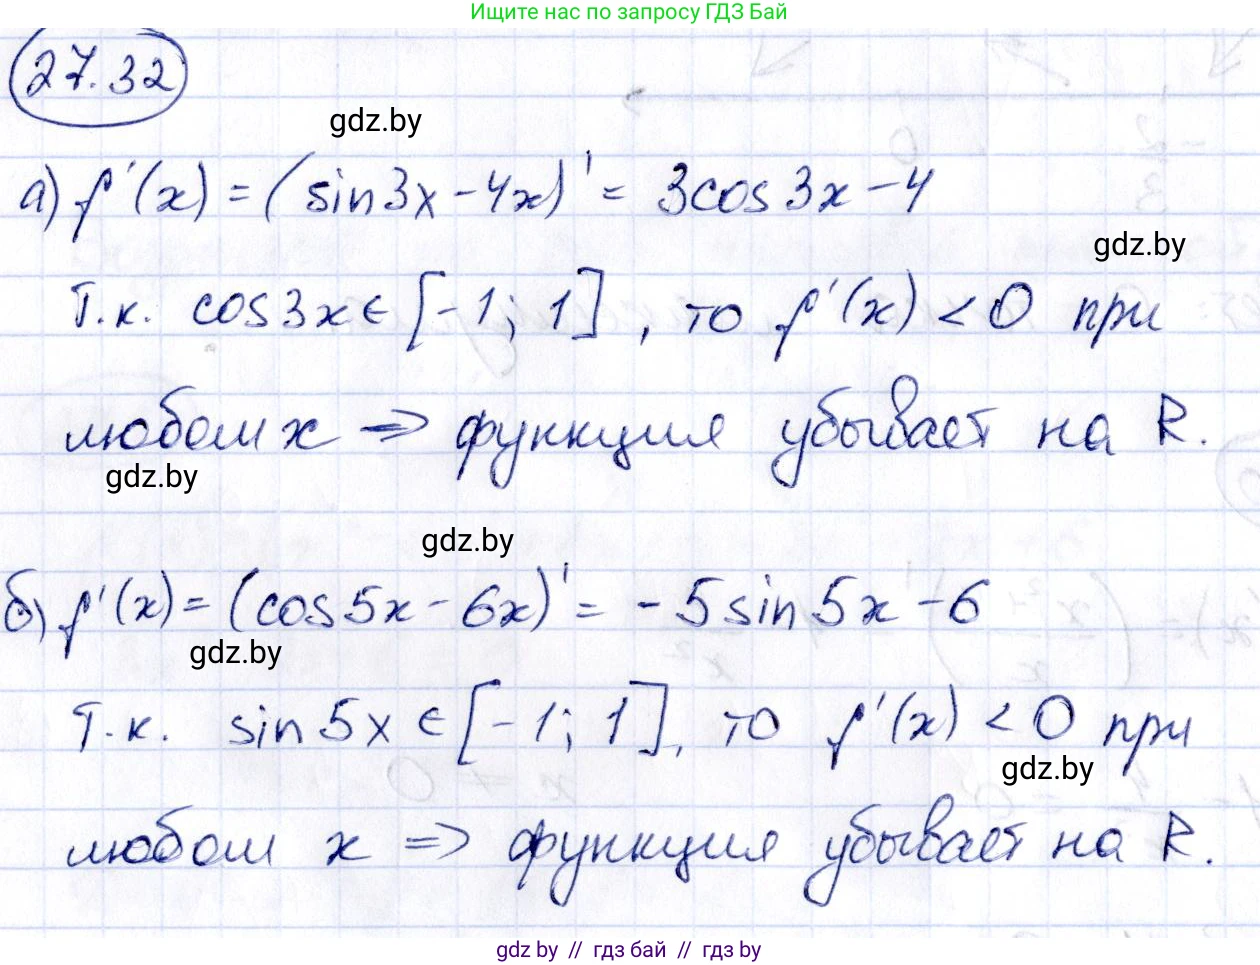 Ищите нас по запросу ГДЗ Бай
27.32
gdz.by
а) f'(x) = (sin3x - 4x)' = 3cos3x - 4
gdz.by
Т.к. cos3x ∈ [-1; 1], то f'(x) < 0 при
любом x => функция убывает на R.
gdz.by
gdz.by
б) f'(x) = (cos5x - 6x)' = -5sin5x - 6
gdz.by
Т.к. sin5x ∈ [-1; 1], то f'(x) < 0 при
gdz.by
любом x => функция убывает на R.
gdz by // гдз бай // гдз by